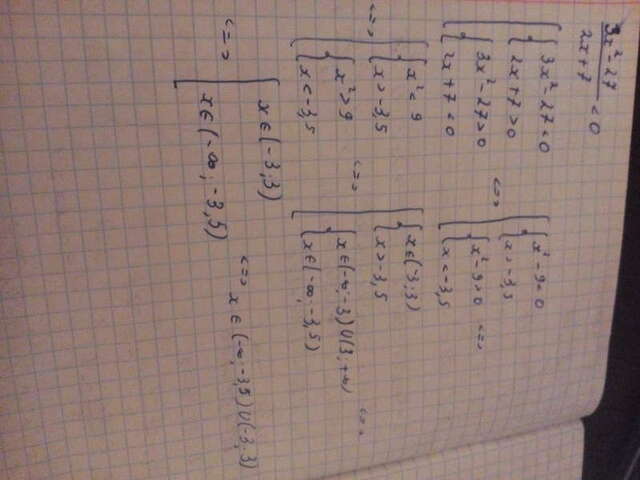 3x²-27 / 2x+7 < 0
[ { 3x²-27<0
{ 2x+7>0
{ 3x²-27>0
{ 2x+7<0
<=>
[ { x²-9<0
{ x>-3,5
{ x²-9>0
{ x<-3,5
<=>
<=>
[ { x²<9
{ x>-3,5
{ x²>9
{ x<-3,5
<=>
[ { x∈(-3;3)
{ x>-3,5
{ x∈(-∞;-3)∪(3;+∞)
{ x∈(-∞;-3,5)
<=>
<=>
[ x∈(-3;3)
x∈(-∞;-3,5)
<=> x∈(-∞;-3,5)∪(-3;3)